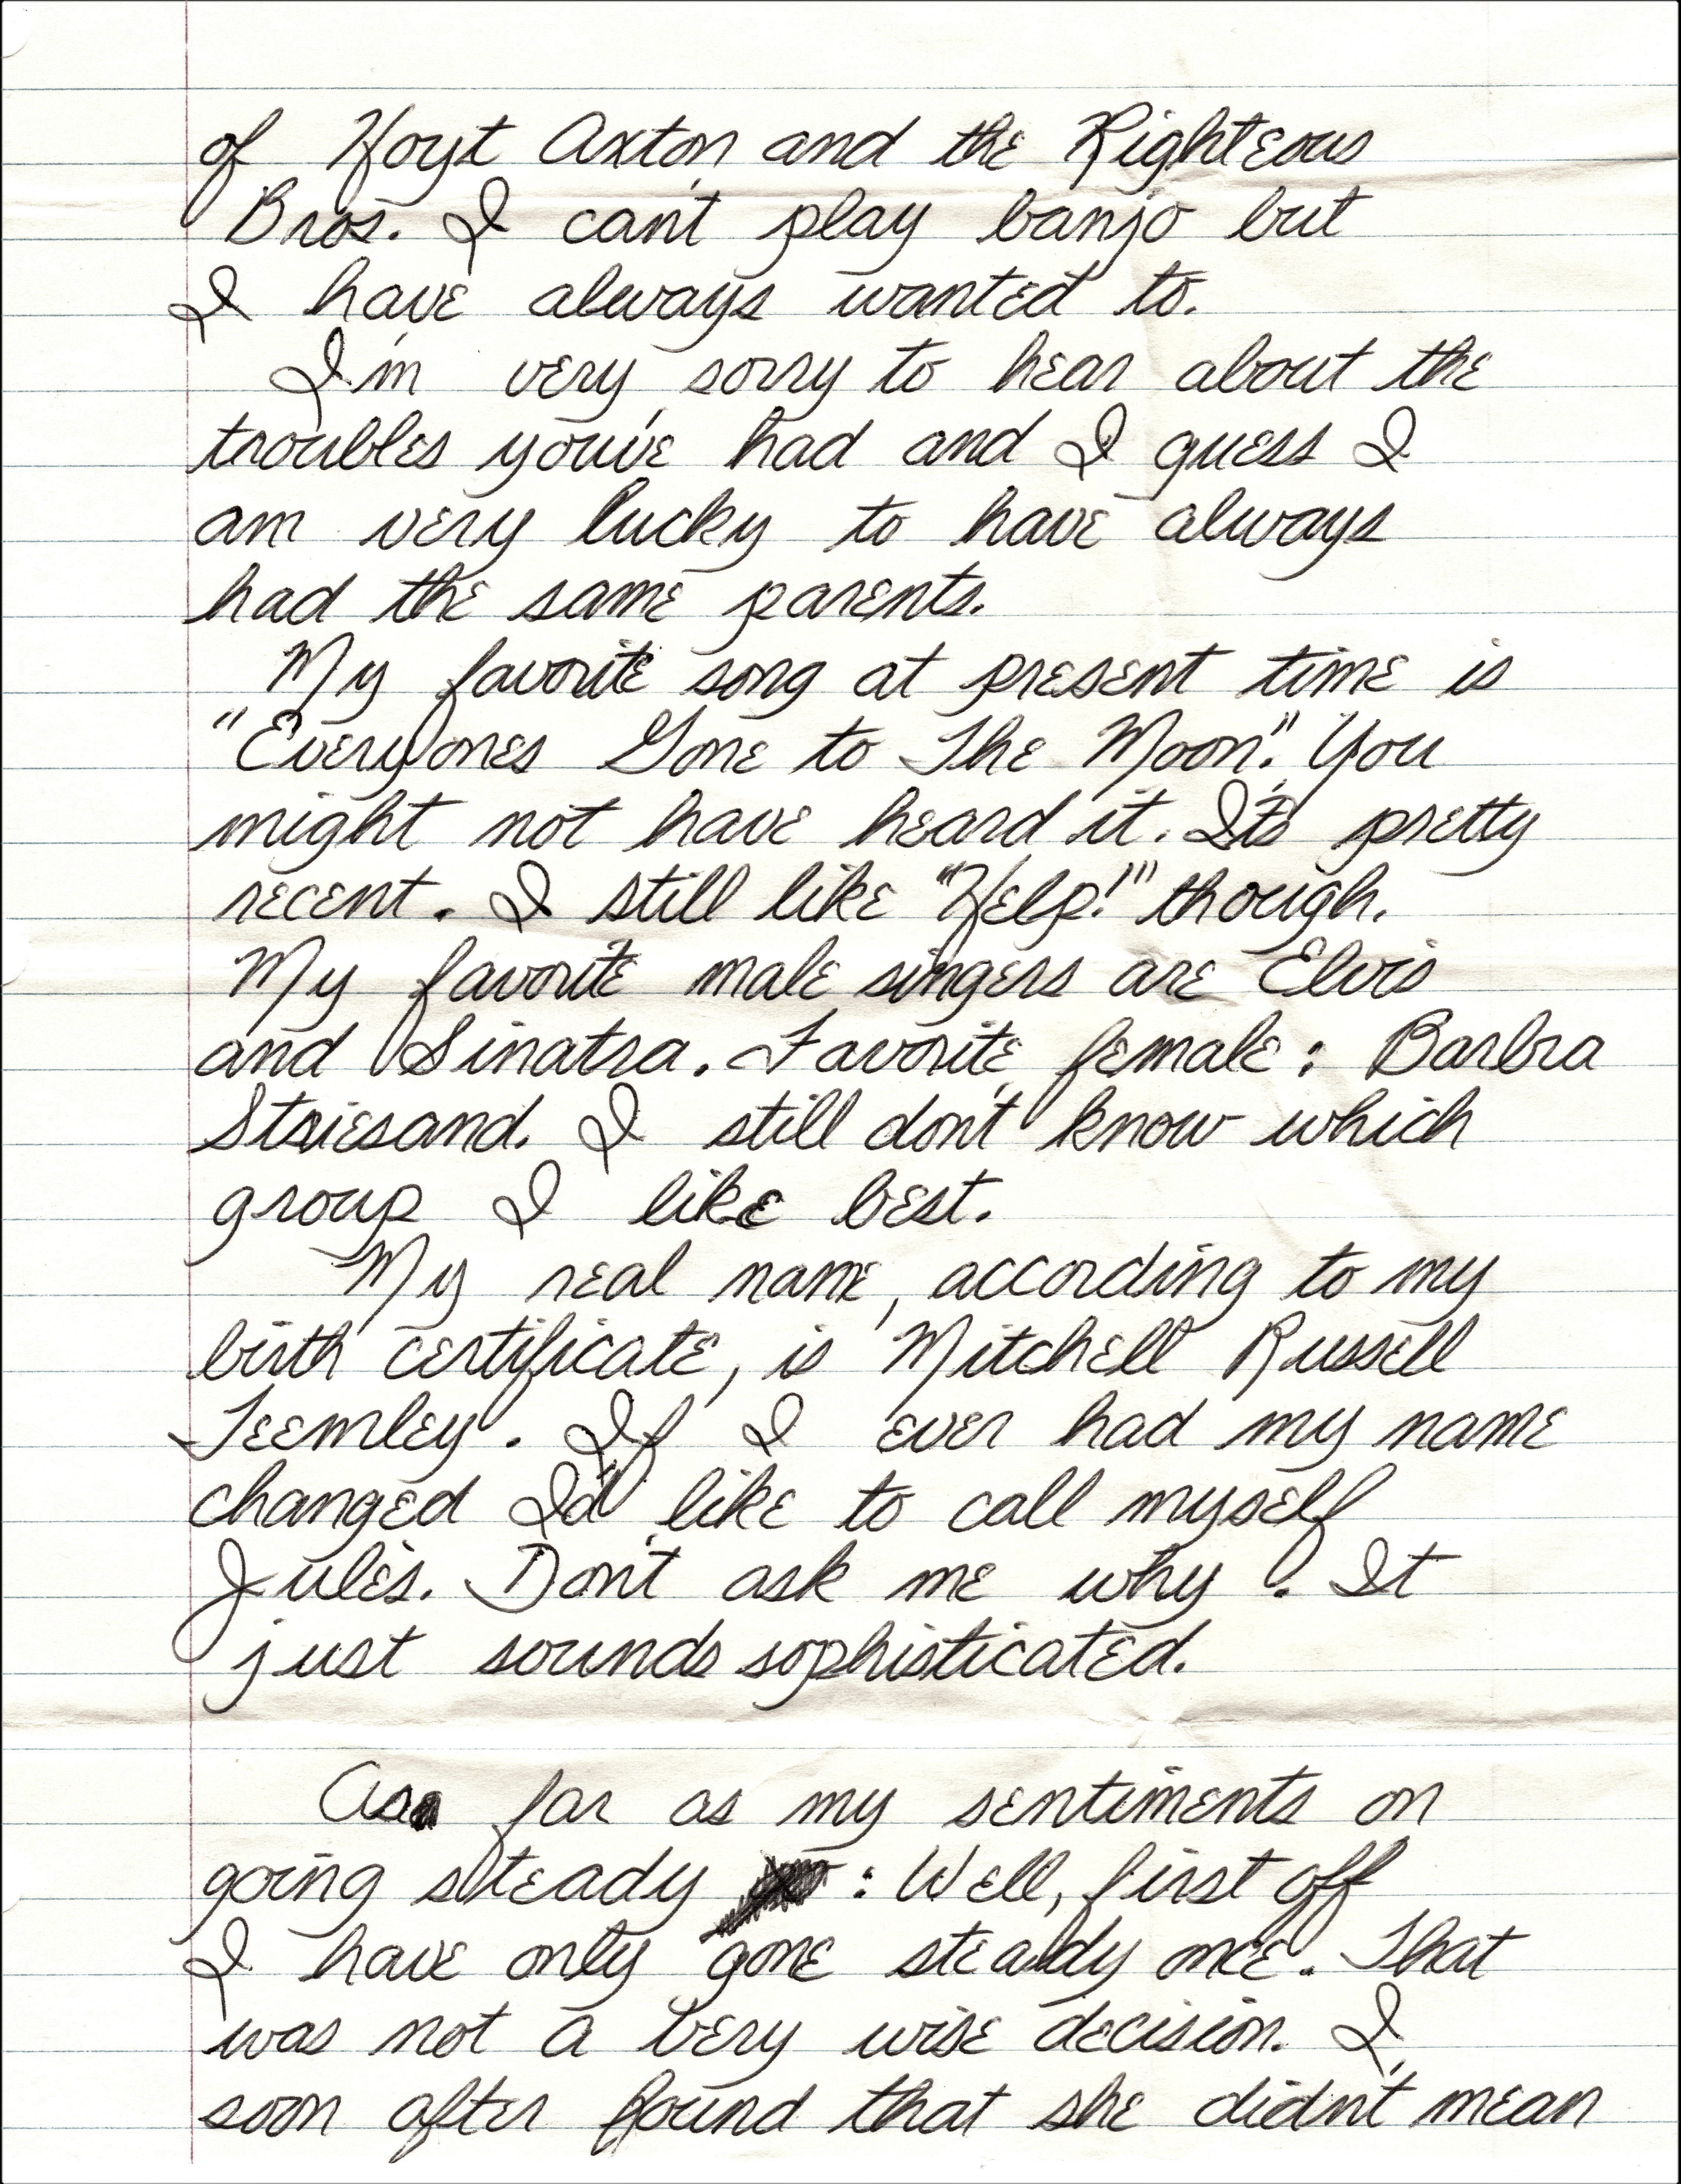 of Hoyt Axton and the Righteous
Bros. I can't play banjo but
I have always wanted to.
I'm very sorry to hear about the
troubles you've had and I guess I
am very lucky to have always
had the same parents.
My favorite song at present time is
"Everyones Gone to The Moon". You
might not have heard it. It's pretty
recent. I still like "Help!" though.
My favorite male singers are Elvis
and Sinatra. Favorite female: Barbra
Striesand. I still don't know which
group I like best.
My real name, according to my
birth certificate, is Mitchell Russell
Teemley. If I ever had my name
changed I'd like to call myself
Jules. Don't ask me why. It
just sounds sophisticated.
As far as my sentiments on
going steady : Well, first off
I have only gone steady once. That
was not a very wise decision. I
soon after found that she didn't mean